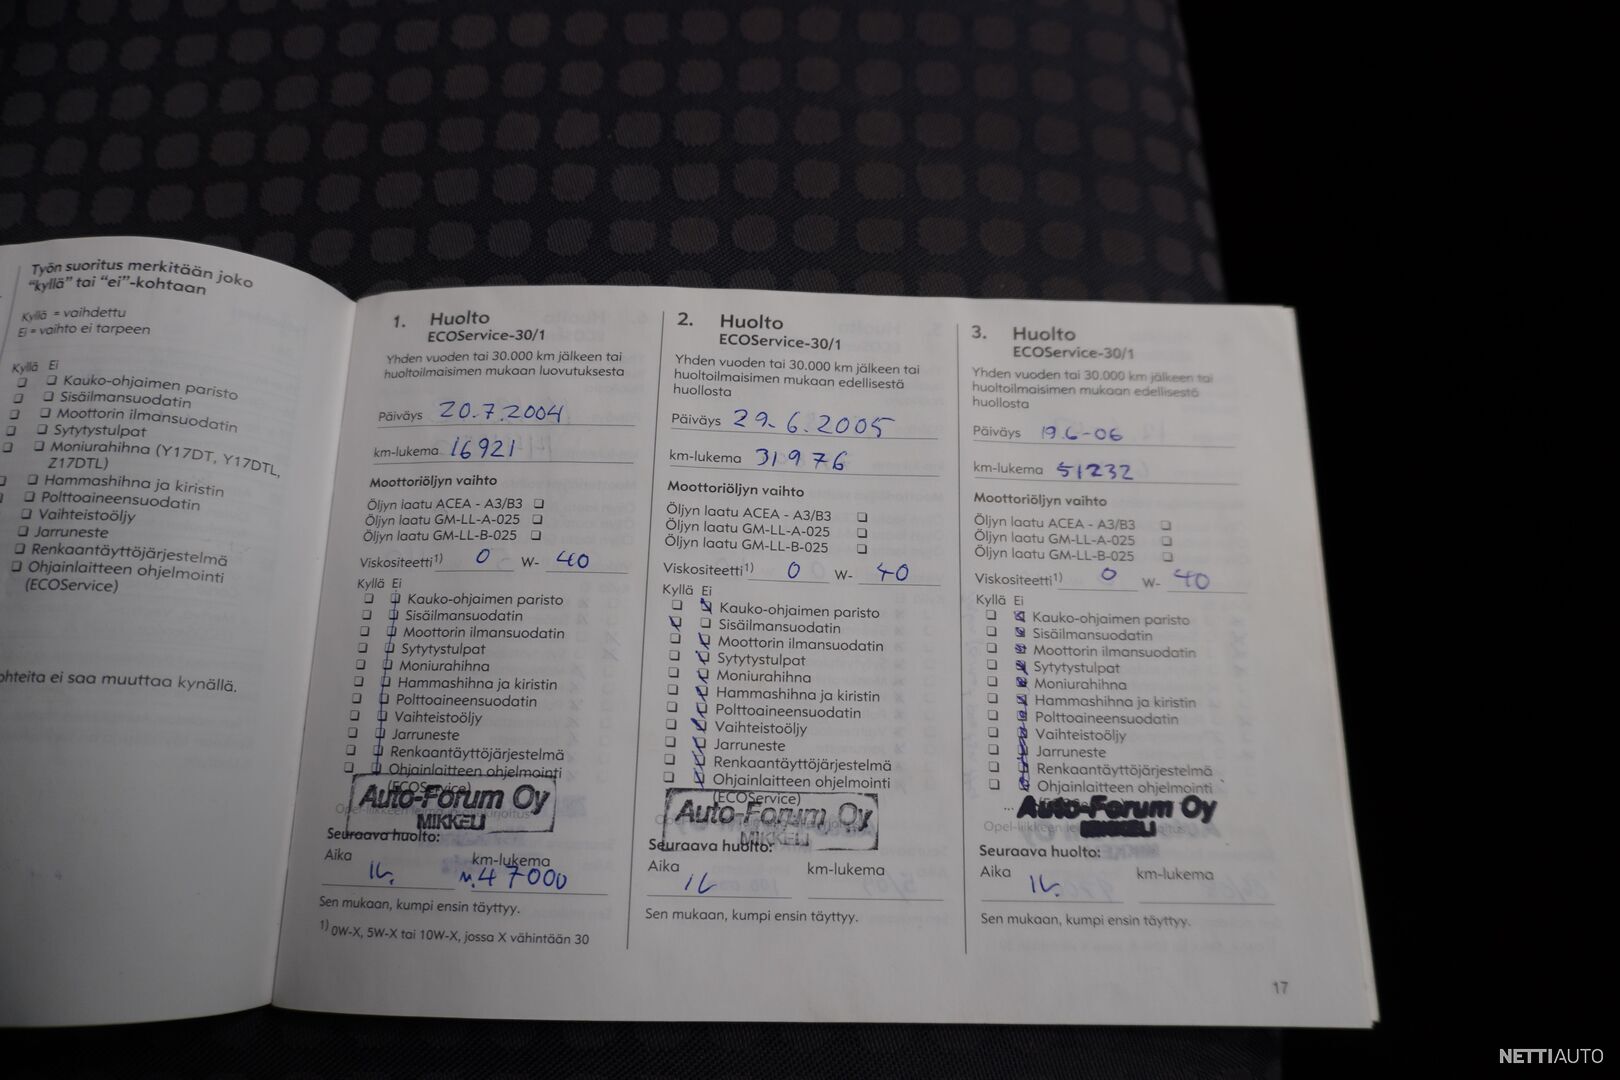 Työn suoritus merkitään joko
"kyllä" tai "ei"-kohtaan
Kyllä = vaihdettu
Ei = vaihto ei tarpeen
Kyllä Ei
Kauko-ohjaimen paristo
Sisäilmansuodatin
Moottorin ilmansuodatin
Sytytystulpat
Moniurahihna (Y17DT, Y17DTL,
Z17DTL)
Hammashihna ja kiristin
Polttoaineensuodatin
Vaihteistoöljy
Jarruneste
Renkaantäyttöjärjestelmä
Ohjainlaitteen ohjelmointi
(ECOService)
ohteita ei saa muuttaa kynällä.
1. Huolto
ECOService-30/1
Yhden vuoden tai 30.000 km jälkeen tai
huoltoilmaisimen mukaan luovutuksesta
Päiväys 20.7.2004
km-lukema 16921
Moottoriöljyn vaihto
Öljyn laatu ACEA - A3/B3
Öljyn laatu GM-LL-A-025
Öljyn laatu GM-LL-B-025
Viskositeetti1) 0 W- 40
Kyllä Ei
Kauko-ohjaimen paristo
Sisäilmansuodatin
Moottorin ilmansuodatin
Sytytystulpat
Moniurahihna
Hammashihna ja kiristin
Polttoaineensuodatin
Vaihteistoöljy
Jarruneste
Renkaantäyttöjärjestelmä
Ohjainlaitteen ohjelmointi
(ECOService)
Auto-Forum Oy
MIKKELI
Seuraava huolto:
Aika km-lukema
47000
Sen mukaan, kumpi ensin täyttyy.
1) 0W-X, 5W-X tai 10W-X, jossa X vähintään 30
2. Huolto
ECOService-30/1
Yhden vuoden tai 30.000 km jälkeen tai
huoltoilmaisimen mukaan edellisestä
huollosta
Päiväys 29.6.2005
km-lukema 31976
Moottoriöljyn vaihto
Öljyn laatu ACEA - A3/B3
Öljyn laatu GM-LL-A-025
Öljyn laatu GM-LL-B-025
Viskositeetti1) 0 W- 40
Kyllä Ei
Kauko-ohjaimen paristo
Sisäilmansuodatin
Moottorin ilmansuodatin
Sytytystulpat
Moniurahihna
Hammashihna ja kiristin
Polttoaineensuodatin
Vaihteistoöljy
Jarruneste
Renkaantäyttöjärjestelmä
Ohjainlaitteen ohjelmointi
(ECOService)
Auto-Forum Oy
MIKKELI
Seuraava huolto:
Aika km-lukema
Sen mukaan, kumpi ensin täyttyy.
3. Huolto
ECOService-30/1
Yhden vuoden tai 30.000 km jälkeen tai
huoltoilmaisimen mukaan edellisestä
huollosta
Päiväys 19.6-06
km-lukema 51232
Moottoriöljyn vaihto
Öljyn laatu ACEA - A3/B3
Öljyn laatu GM-LL-A-025
Öljyn laatu GM-LL-B-025
Viskositeetti1) 0 W- 40
Kyllä Ei
Kauko-ohjaimen paristo
Sisäilmansuodatin
Moottorin ilmansuodatin
Sytytystulpat
Moniurahihna
Hammashihna ja kiristin
Polttoaineensuodatin
Vaihteistoöljy
Jarruneste
Renkaantäyttöjärjestelmä
Ohjainlaitteen ohjelmointi
Auto-Forum Oy
MIKKELI
Seuraava huolto:
Aika km-lukema
Sen mukaan, kumpi ensin täyttyy.
17
NETTIAUTO